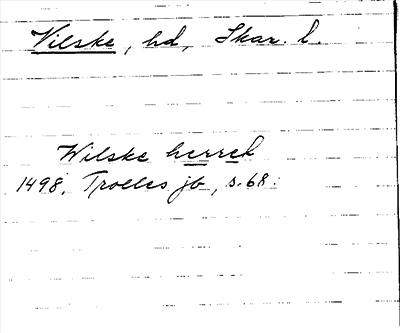 Vilske, hd, Skar. l.
Wilske herred
1498. Trolles jb, s. 68.